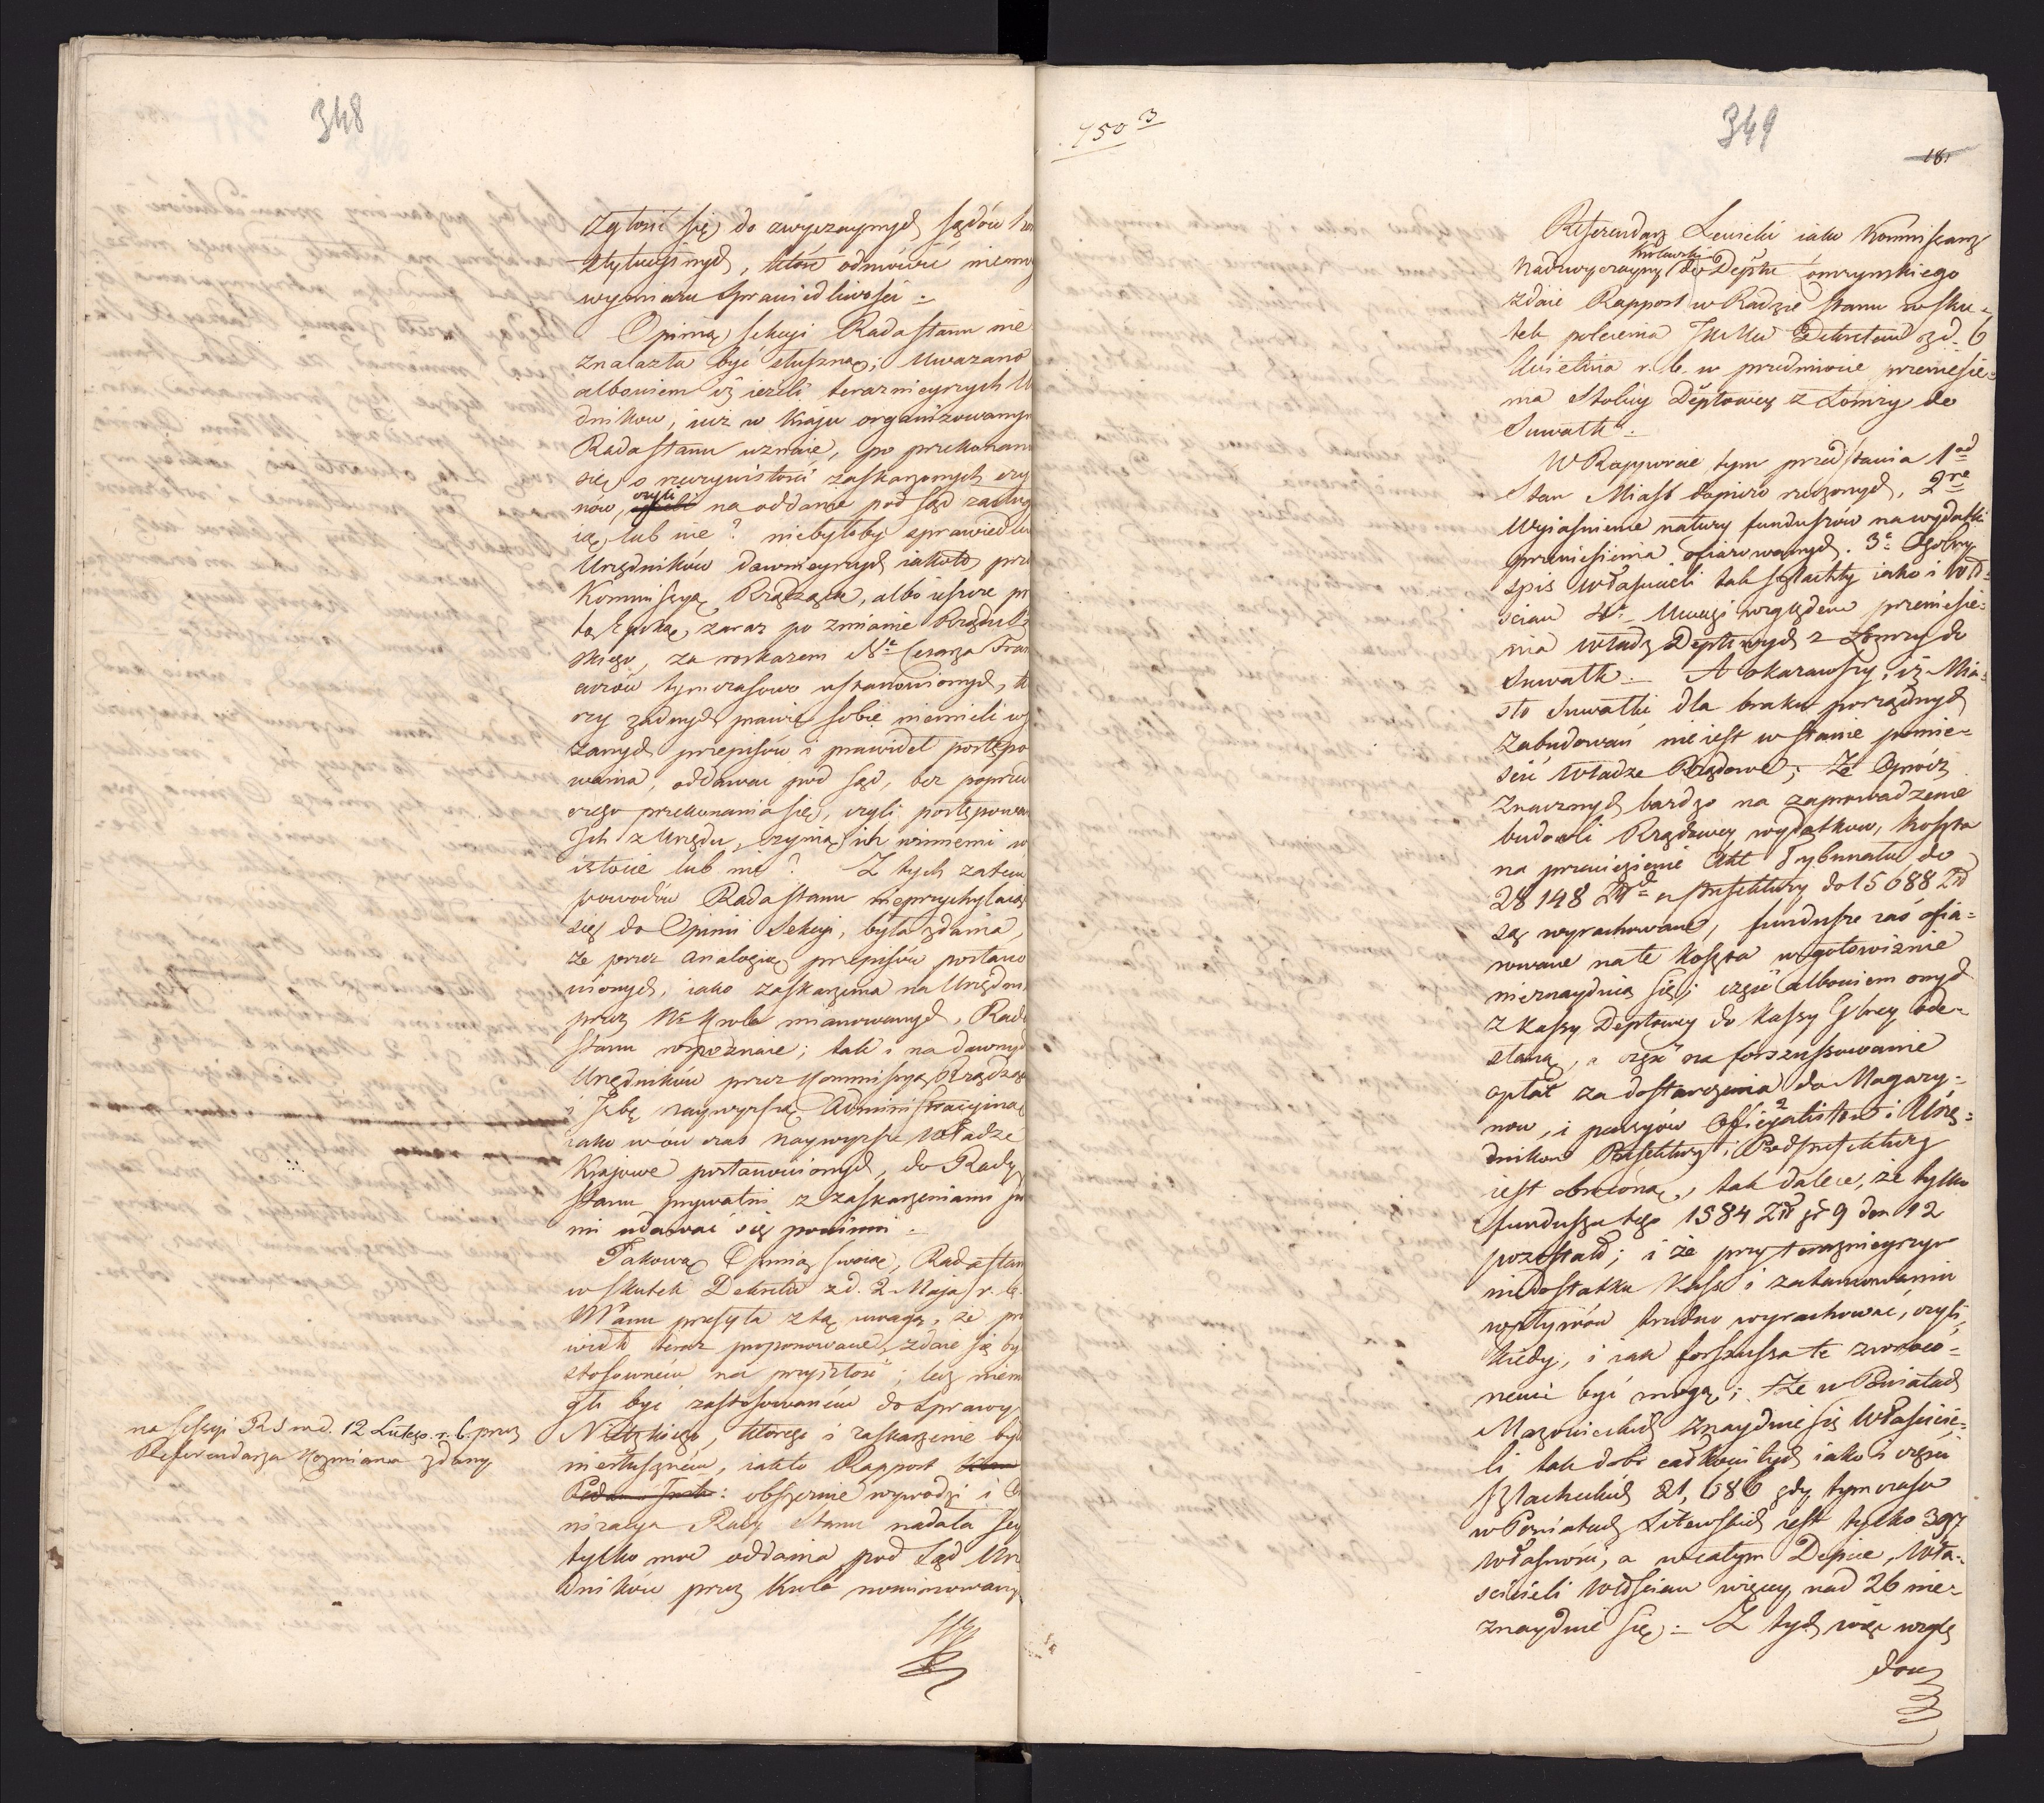 348
zgłosić się do zwyczaynych sądów kon
stytucyinych, które odmówić niemo
wymiaru sprawiedliwości.
Opinią sekcyi Rada Stanu nie
znalazła być słuszną; uważano
albowiem iż ieżeli terazniéyszych U
dników, iuż w kraju organizowanym
Rada Stanu uznaie, po przekonan
się o rzeczywistości zaskarżonych czy
nów, czyli na oddanie pod sąd zasług
ią, lub nie? niebyłoby sprawiedliw
Urzędników dawnieyszych iakoto prze
Kommissyą Rządzącą, albo ieszcze pr
tąż samą, zaraz po zmianie Rządu
skiego, za roskazem Nc Cesarza Fran
cuzów tymczasowo ustanowionych, k
rzy żadnych prawie sobie niemieli w
zanych przepisów i prawideł postępo
wania, oddawać pod sąd, bez poprzed
czego przekonania się, czyli postępowan
Ich z Urzędu, czynią ich winnemi w
istocie lub nie? Z tych zatem
powodów Rada Stanu nieprzychylaiąc
się do Opinii Sekcyi, była zdania,
że przez analogią przepisów postano
wionych, iako zaskarżenia na Urzędni
przez Nc Króla mianowanych, Rada
Stanu rozpoznaie; tak i na dawnych
Urzędników przez Kommissyą Rządząc
i Izbę naywyższą Administracyiną
iako wów czas naywyższe Władze
Krajowe postanowionych, do Rady
Stanu prywatni z zaskarżeniami
mi udawać się powinni.
Takową Opinią swoię, Rada Stan
w skutek Dekretu z d. 2 Maja r. b.
WPanu przesyła z tą uwagą, że pr
widło teraz proponowane, zdaie się by
stosownem na przyszłość; lecz niem
gło być zastosowaném do sprawy
Nietzkiego, którego i zaskarżenie by
niesłuszném, iakto Rapport
obszernie wywodzi i
nizacya Rady Stanu nadała Iey
tylko moc oddania pod Sąd Urz
dników przez Króla nominowany
na Sessyi R S na d. 12 Lutego r. b. przez
Referendarza Koźmiana zdany
750 3
349
181
Referendarz Lewicki iako Kommissarz
Nadzwyczayny Królewski do Deptu Łomżynskiego
zdaie Rapport w Radzie Stanu w sku-
tek polecenia JWMci Dekretem z d. 6
Kwietnia r. b. w przedmiocie przeniesie-
nia Stolicy Deptowey z Łomży do
Suwałk.
W Rapporcie tym przedstawia 1od
Stan Miast dopiero rzeczonych, 2re
Wyiaśnienie natury funduszów na wydatki
przeniesienia ofiarowanych. 3e Ogólny
spis Właścicieli tak szlachty iako i Wło-
ścian 4e Uwagi względem przeniesie-
nia Władz Deptowych z Łomży do
Suwałk. A okazawszy, iż Mia-
sto Suwałki dla braku porządnych
zabudowań nie iest w stanie pomie-
ścić Władze Rządowe; Że oprócz
znacznych bardzo na zaprowadzenie
budowli Rządowey wydatków, koszta
na przewiezienie Akt Trybunału do
28148 Złł a Prefektury do 15688 Złł
są wyrachowane, fundusze zaś ofia-
rowane na te koszta w gotowiźnie
nieznayduią się; część albowiem onych
z kassy Deptowey do Kassy Głney ode-
słaną, a część na forszussowanie
opłat za dostarczenia do Magazy-
nów, i pensyów Officyalistów i Urzę-
dników Prefektury i Podprefektury
iest obrócona, tak dalece, że tylko
funduszu tego 1584 Złł gr 9 den 12
pozostało; i że przy teraznieyszym
niedostatku kass i zatamowaniu
wpływów trudno wyrachować, czyli,
kiedy, i iak forszussa te zwróco-
nemi być mogą; Że w Powiatach
Mazowieckich znayduie się Właścicie-
li tak dóbr całkowitych iako i części
szlacheckich 21,686 gdy tymczasem
w Powiatach Litewskich iest tylko 397
własności, a w całym Depcie, Wła-
ścicieli Włościan więcey nad 26 nie-
znayduie się. Z tych więc wzglę
dów